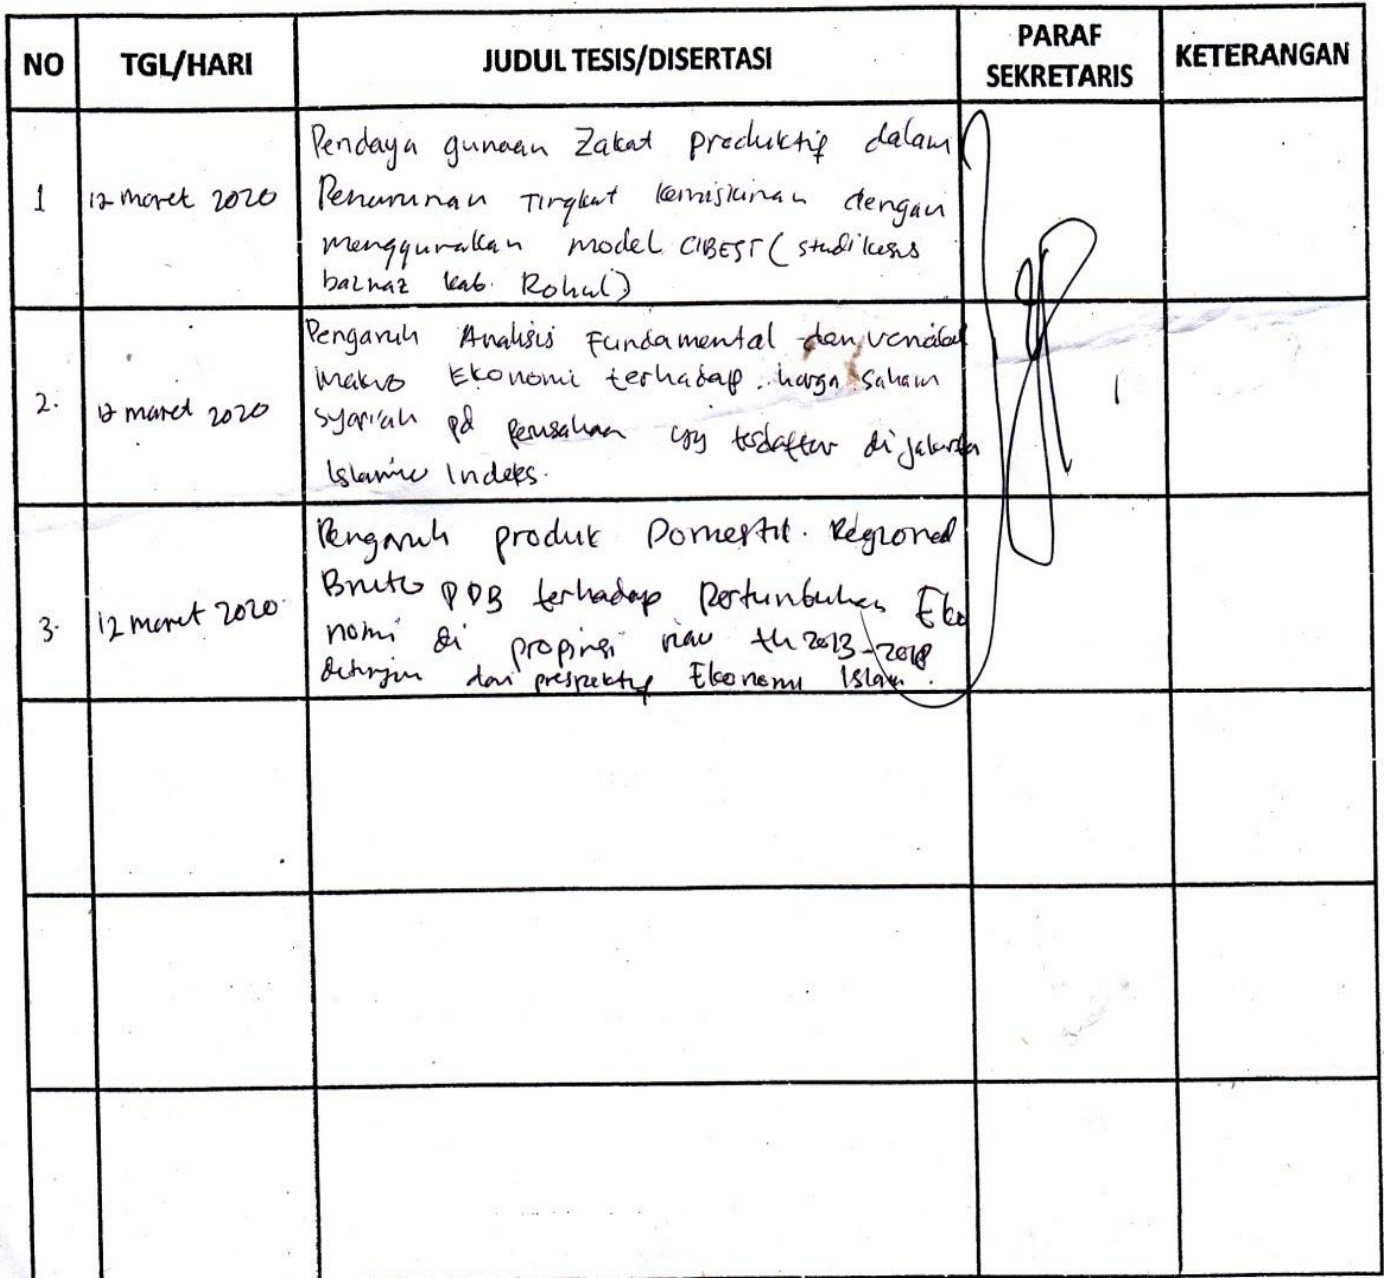 NO TGL/HARI JUDUL TESIS/DISERTASI PARAF SEKRETARIS KETERANGAN
1 12 maret 2020 Pendaya gunaan Zakat produktif dalam
Penurunan Tingkat kemiskinan dengan
menggunakan model CIBEST (studi kasus
baznaz kab. Rohul)
2. 12 maret 2020 Pengaruh Analisis Fundamental dan variabel
makro Ekonomi terhadap harga saham
syariah pd perusahaan yg terdaftar di jakarta
Islamic Indeks.
3. 12 maret 2020 Pengaruh produk Domestik Regional
Bruto PDB terhadap Pertumbuhan Eko
nomi di propinsi riau th 2013-2018
ditinjau dari prespektif Ekonomi Islam.